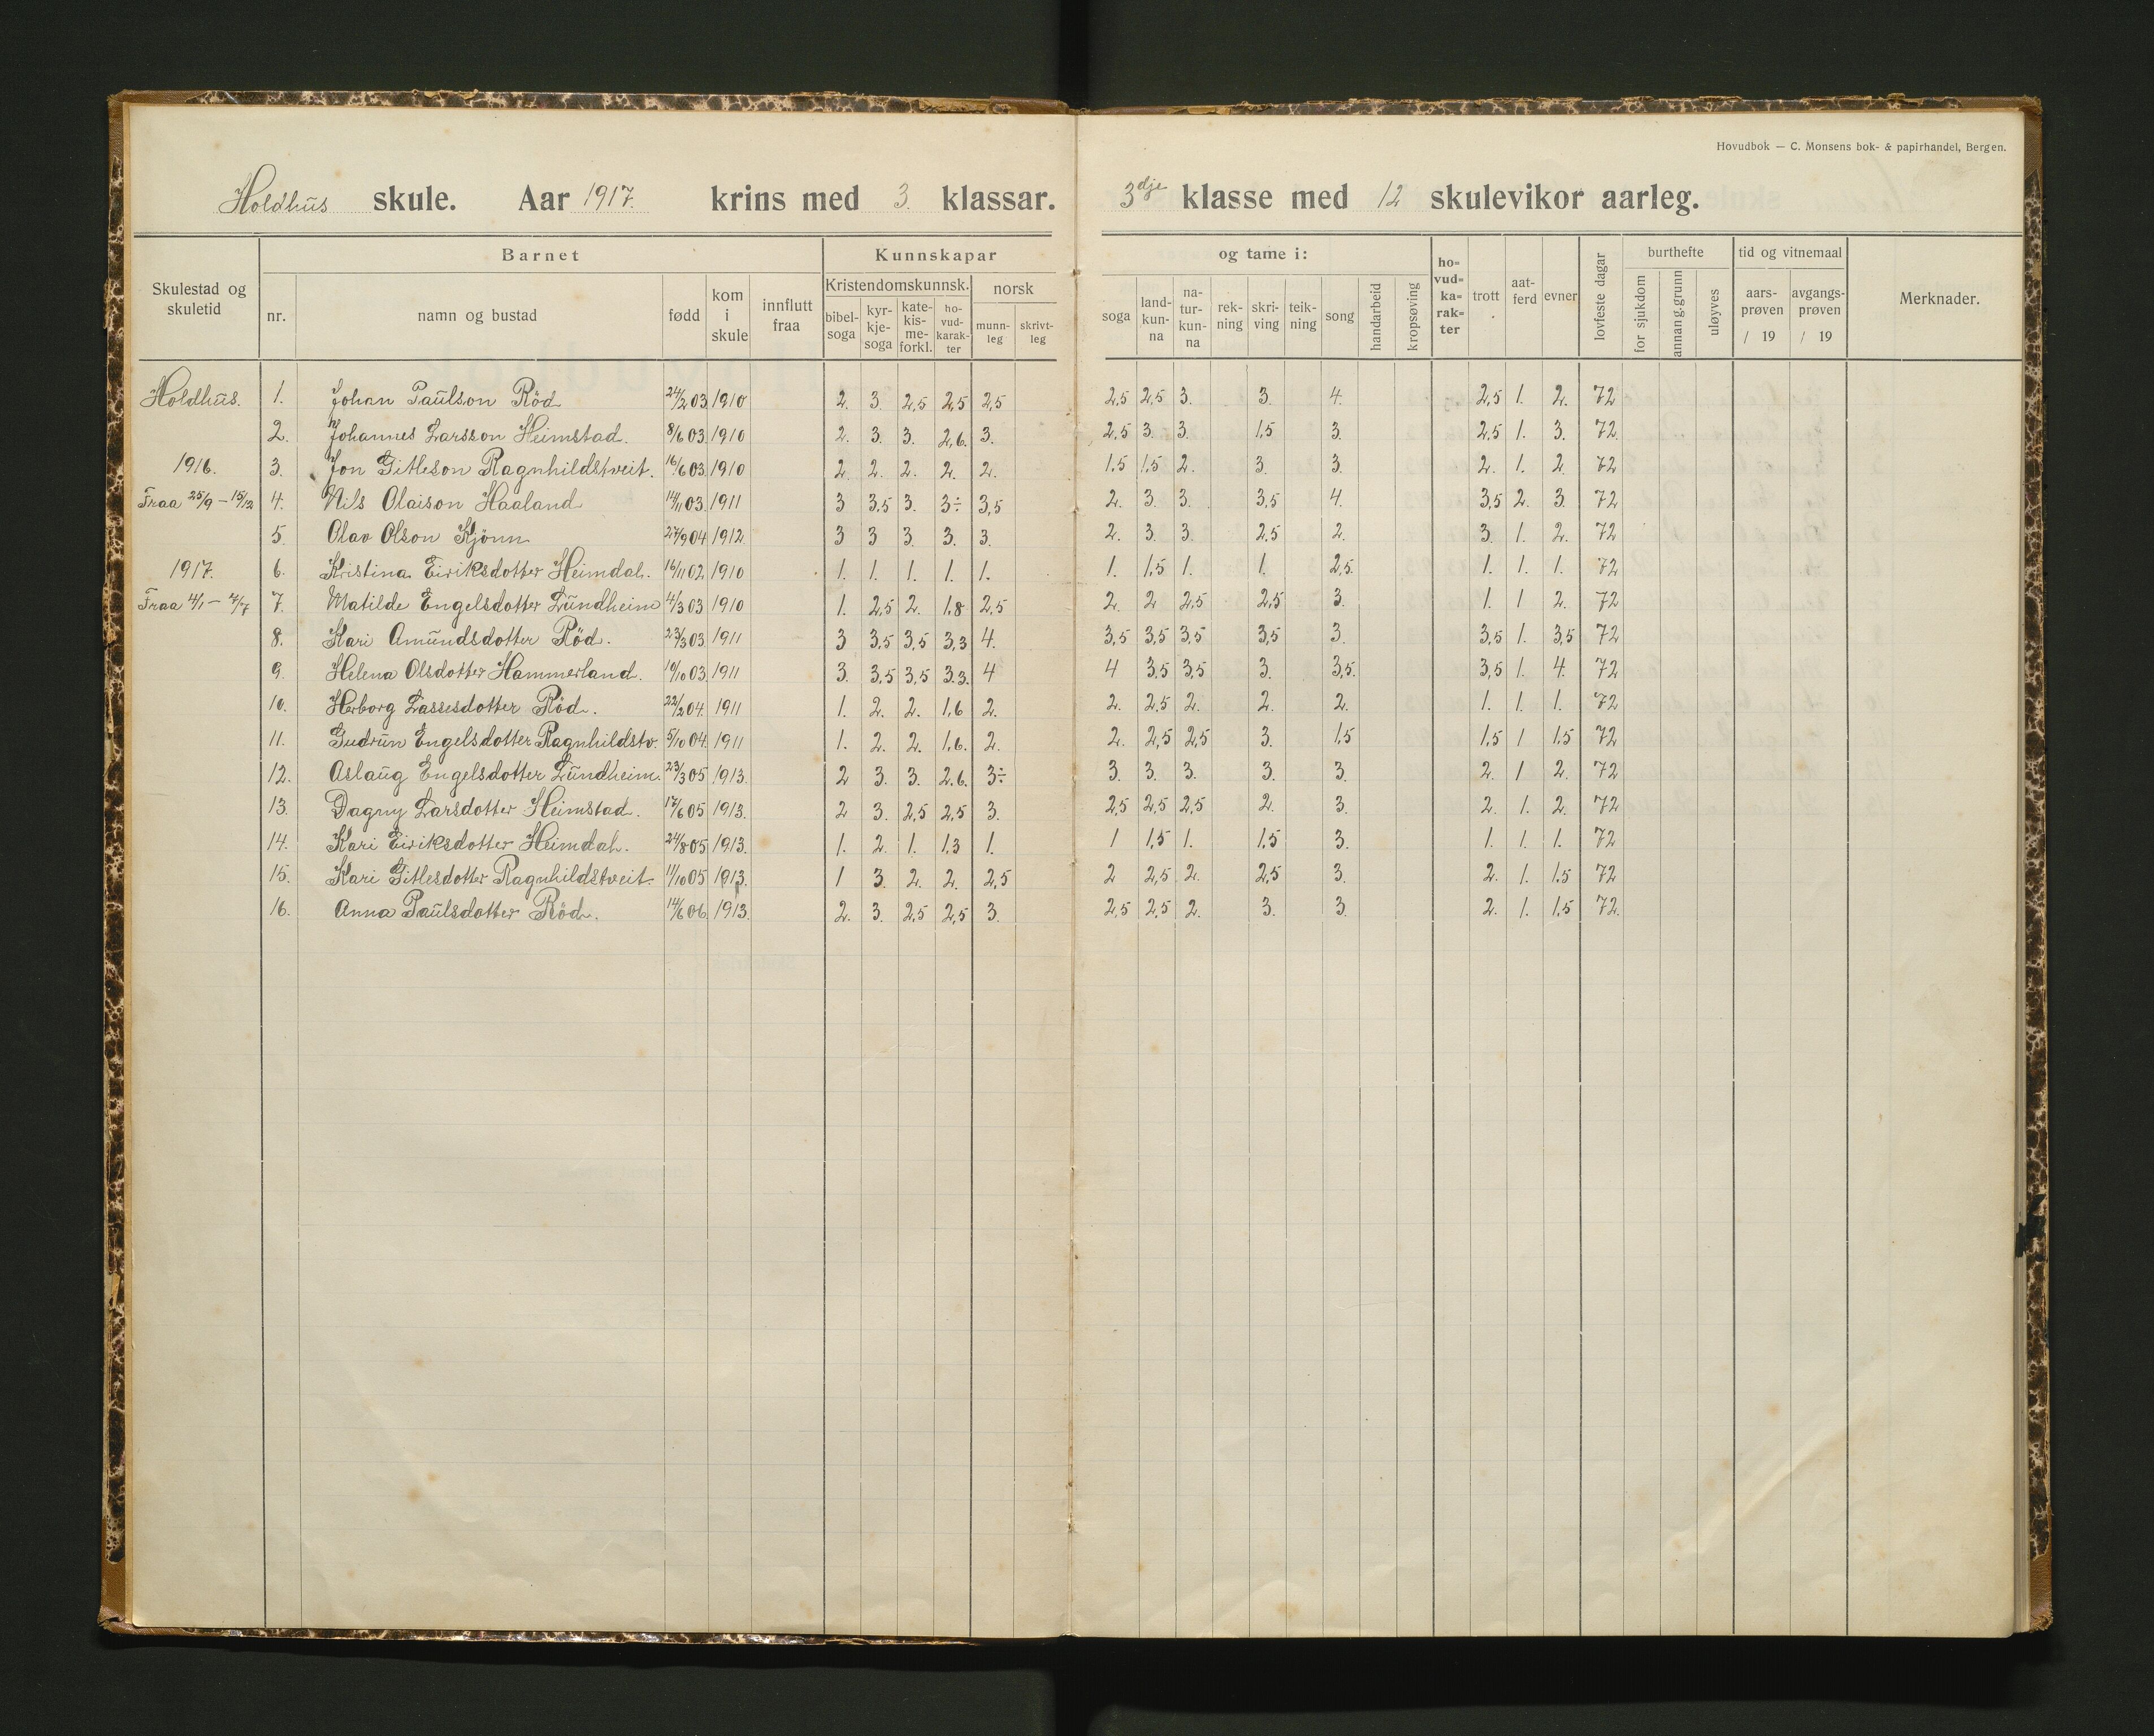 Hovudbok — C. Monsens bok- & papirhandel, Bergen.
Holdhus skule. Aar 1917. krins med 3. klassar. 3dje klasse med 12 skulevikor aarleg.
Skulestad og skuletid
Barnet
nr. namn og bustad fødd kom i skule innflutt fraa
Kunnskapar og tame i:
Kristendomskunnsk. norsk
bibel-soga kyr-kje-soga kate-kis-me-forkl. ho-vud-karak-ter munn-leg skrivt-leg
soga land-kun-na na-tur-kun-na rek-ning skri-ving teik-ning song handarbeid kropsøving
ho-vud-ka-rak-ter trott aat-ferd evner lovfeste dagar
burthefte
for sjukdom annan grunn uløyves
tid og vitnemaal
aars-prøven / 19 avgangs-prøven / 19
Merknader.
Holdhus. 1. Johan Paulson Röd 24/2 03. 1910 2. 3. 2,5 2,5 2,5 2,5 2,5 3. 3. 4. 2,5 1. 2. 72
2. Johannes Larsson Heimstad. 8/6 03. 1910 2. 3. 3. 2,6. 3. 2,5 3. 3. 1,5 3. 2,5 1. 3. 72.
1916. 3. Jon Gitleson Ragnhildstveit. 16/6 03. 1910 2. 2. 2. 2. 2. 1,5 1,5 2. 3. 3. 2. 1. 2. 72
Fraa 25/9 – 15/12 4. Nils Olaison Haaland 14/11 03. 1911 3 3,5 3. 3÷ 3,5 2. 3. 3. 3,5 4. 3,5 2. 3. 72
5. Olav Olson Kjönn 27/9 04 1912. 3 3 3. 3. 3. 2. 3. 3. 2,5 2. 3. 1. 2. 72
1917. 6. Kristina Eiriksdotter Heimdal. 16/11 02. 1910 1. 1. 1. 1. 1. 1. 1,5 1. 1. 2,5. 1. 1. 1. 72
Fraa 4/1 – 4/7 7. Matilde Engelsdotter Lundheim 4/3 03 1910 1. 2,5 2. 1,8 2,5 2. 2 2,5 2,5 3. 1. 1 2. 72
8. Kari Amundsdotter Röd. 23/3 03. 1911 3 3,5 3,5 3,3 4. 3,5 3,5 3,5 3,5 3. 3,5 1. 3,5 72
9. Helena Olsdotter Hammerland. 19/10 03. 1911 3. 3,5 3,5 3.3. 4 4 3,5 3,5 3. 3,5. 3,5 1. 4. 72
10. Herborg Lassesdotter Röd. 22/2 04. 1911 1. 2. 2. 1,6 2. 2. 2,5 2. 2. 2. 1. 1. 1. 72
11. Gudrun Engelsdotter Ragnhildstv. 5/10 04. 1911 1. 2. 2. 1,6. 2. 2. 2,5 2,5 3. 1,5 1,5 1 1,5 72
12. Aslaug Engelsdotter Lundheim. 23/3 05 1913. 2 3. 3. 2.6. 3÷ 3. 3. 3. 3. 3. 2. 1 2. 72
13. Dagny Larsdotter Heimstad. 17/6 05 1913. 2 3. 2,5 2,5 3. 2,5 2,5 2,5 2. 3. 2. 1. 2. 72
14. Kari Eiriksdotter Heimdal. 24/8 05 1913. 1. 2. 1. 1,3 1. 1 1,5 1. 1,5 3. 1. 1. 1. 72
15. Kari Gitlesdotter Ragnhildstveit. 11/10 05 1913. 1 3. 2. 2. 2,5 2 2,5 2. 2,5 3. 2. 1. 1,5 72
16. Anna Paulsdotter Röd. 14/6 06. 1913. 2. 3. 2,5 2,5 3. 2,5 2,5 2. 3. 3. 2. 1. 1,5 72.